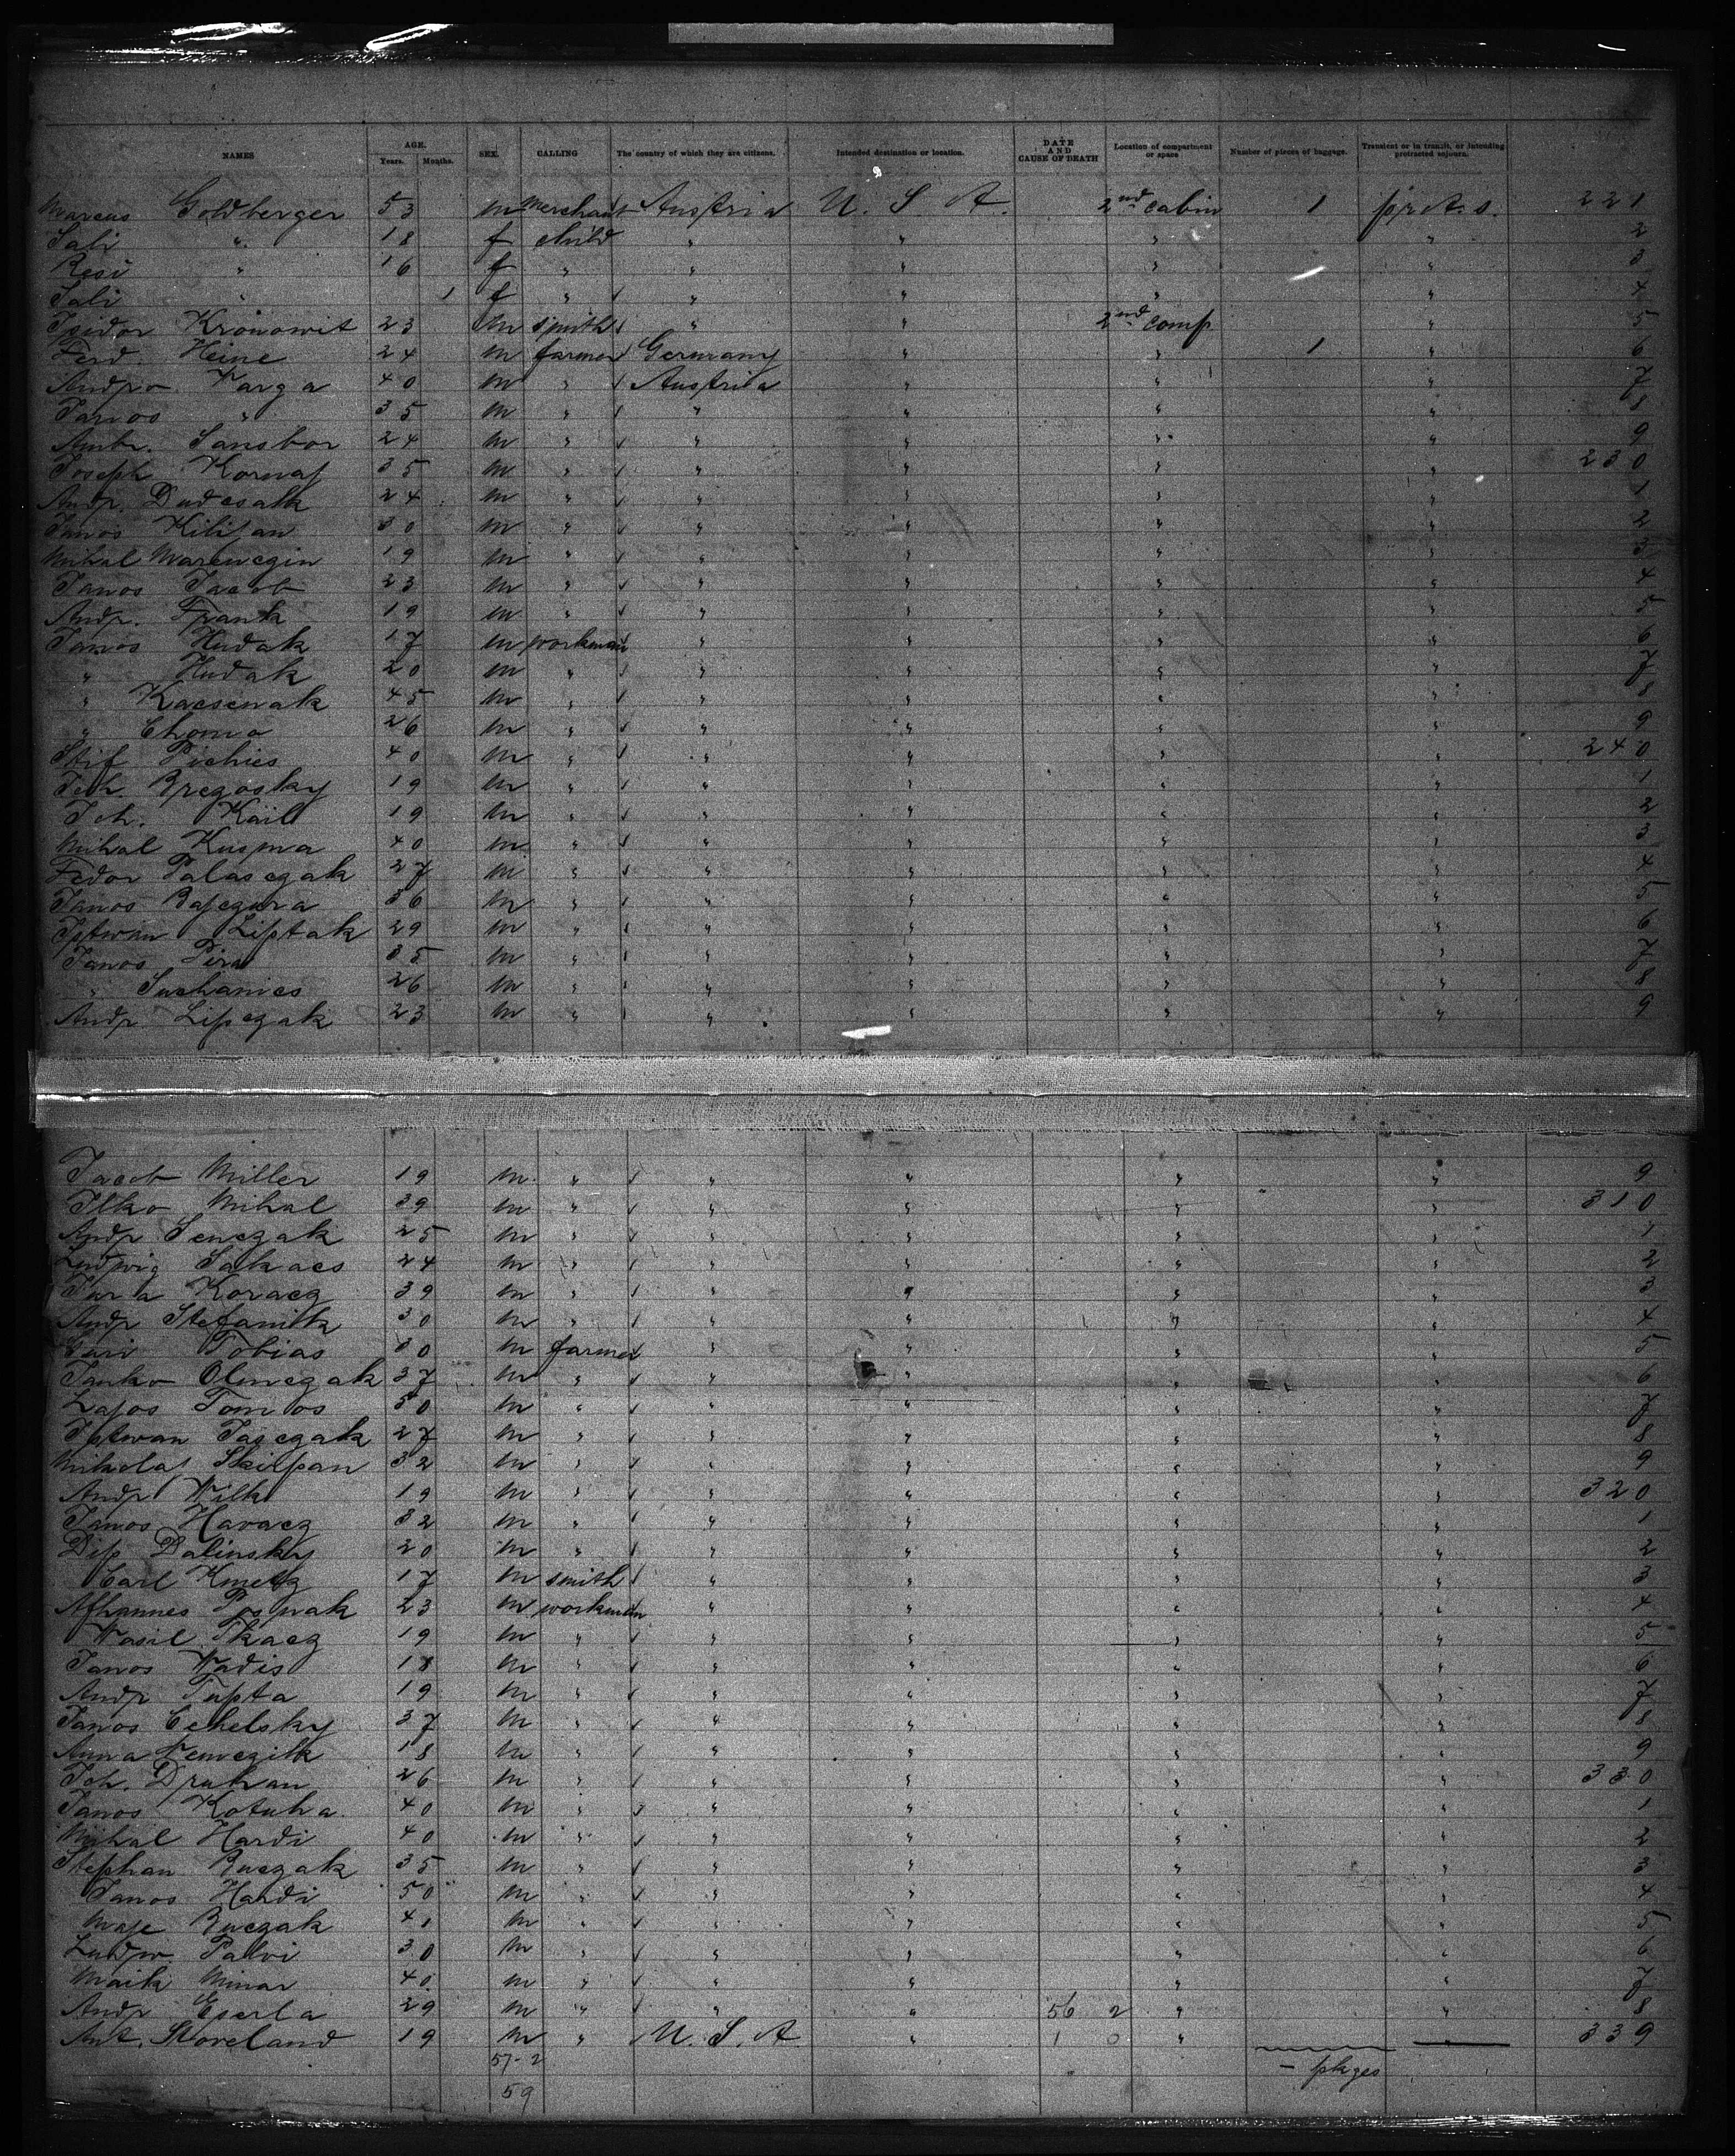 NAMES AGE. Years. Months. SEX. CALLING The country of which they are citizens. Intended destination or location. DATE AND CAUSE OF DEATH Location of compartment or space Number of pieces of baggage. Transient or in transit, or intending protracted sojourn.
Marcus Goldberger 53 m Merchant Austria U. S. A. 2nd cabin 1 prot. s. 221
Sali " 18 f child " " " " 2
Resi " 16 f " " " " " 3
Sali " 1 f " " " " " 4
Isidor Kronowit 23 m smith " " 2nd comp " 5
Ferd. Heine 24 m farmer Germany " " 1 " 6
Varga 40 m " Austria " " " 7
Janos " 35 m " " " " " 8
Ambr. Sansbor 24 m " " " " " 9
Joseph Kornaj 35 m " " " " " 230
Andr. Dudcsak 24 m " " " " " 1
Janos Kilijan 30 m " " " " " 2
Mihal 19 m " " " " " 3
Janos Jacob 23 m " " " " " 4
Andr. Frank 19 m " " " " " 5
Janos Hudak 17 m workman " " " " 6
" Hudak 20 m " " " " " 7
" Kacsenak 45 m " " " " " 8
" Choma 26 m " " " " " 9
Stif Pichics 40 m " " " " " 240
Joh. 19 m " " " " " 1
Joh. Kail 19 m " " " " " 2
Mihal Kusma 40 m " " " " " 3
Fedor Palasczak 27 m " " " " " 4
Janos Bajczura 36 m " " " " " 5
Istwan Liptak 29 m " " " " " 6
Janos Pira 35 m " " " " " 7
" Suchanics 26 m " " " " " 8
Andr Lipczak 23 m " " " " " 9
Jacob Miller 19 m " " " " " 9
Ilko Mihal 39 m " " " " " 310
Andr Senczak 25 m " " " " " 1
Ludwig Sakacs 24 m " " " " " 2
Jura Koracz 39 m " " " " " 3
Andr Stefanik 30 m " " " " " 4
Juri Tobias 30 m farmer " " " " 5
Janko Olenczak 37 m " " " " " 6
Lajos Tomtos 50 m " " " " " 7
Istwan Jasczak 27 m " " " " " 8
Mikolaj Skilpan 32 m " " " " " 9
Andr Wilk 19 m " " " " " 320
Janos Haracz 32 m " " " " " 1
Dalinsky 20 m " " " " " 2
Carl Kmetz 17 m smith " " " " 3
Posnak 23 m workman " " " " 4
Wasil Tkacz 19 m " " " " " 5
Janos Wadis 18 m " " " " " 6
Andr Tupta 19 m " " " " " 7
Janos Cehelsky 37 m " " " " " 8
Anna Wenczik 18 m " " " " " 9
Joh. Druhan 26 m " " " " " 330
Janos Kotuha 40 m " " " " " 1
Mihal Hardi 40 m " " " " " 2
Stephan Ruczak 35 m " " " " " 3
Janos Hardi 50 m " " " " " 4
Ruczak 41 m " " " " " 5
Ludw. Palvi 30 m " " " " " 6
Maik Minar 40 m " " " " " 7
Andr Eserla 29 m " " " 56 2 " " 8
Ant. Storeland 19 m " U. S. A. " 1 0 " 339
57-2 - pkges
59